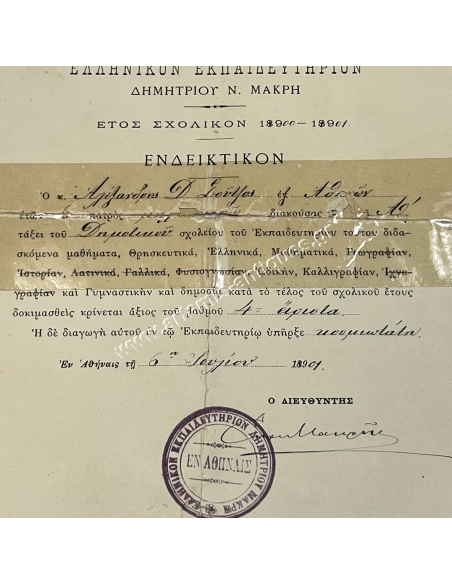 ΕΛΛΗΝΙΚΟΝ ΕΚΠΑΙΔΕΥΤΗΡΙΟΝ
ΔΗΜΗΤΡΙΟΥ Ν. ΜΑΚΡΗ
ΕΤΟΣ ΣΧΟΛΙΚΟΝ 1900—1901
ΕΝΔΕΙΚΤΙΚΟΝ
Ὁ κ. Ἀλέξανδρος Δ. Σοῦτσος ἐξ Ἀθηνῶν
ἐτῶν 6 πατρὸς διακούσας ἐν τῇ Αῃ
τάξει τοῦ Δημοτικοῦ σχολείου τοῦ Ἐκπαιδευτηρίου τούτου διδα-
σκόμενα μαθήματα, Θρησκευτικά, Ἑλληνικά, Μαθηματικά, Γεωγραφίαν,
Ἱστορίαν, Λατινικά, Γαλλικά, Φυσιογνωσίαν, Ὠδικήν, Καλλιγραφίαν, Ἰχνο-
γραφίαν καὶ Γυμναστικὴν καὶ δημοσίᾳ κατὰ τὸ τέλος τοῦ σχολικοῦ ἔτους
δοκιμασθεὶς κρίνεται ἄξιος τοῦ βαθμοῦ ἄριστα
Ἡ δὲ διαγωγὴ αὐτοῦ ἐν τῷ Ἐκπαιδευτηρίῳ ὑπῆρξε κοσμιωτάτη.
Ἐν Ἀθήναις τῇ 6ῃ Ἰουλίου 1901
Ο ΔΙΕΥΘΥΝΤΗΣ
Μακρῆς
ΕΛΛΗΝΙΚΟΝ ΕΚΠΑΙΔΕΥΤΗΡΙΟΝ ΔΗΜΗΤΡΙΟΥ ΜΑΚΡΗ
ΕΝ ΑΘΗΝΑΙΣ